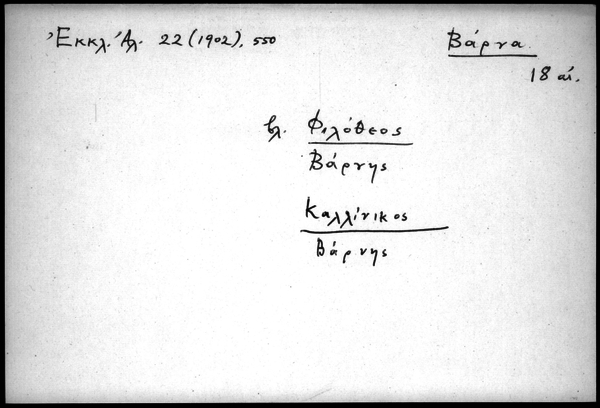 Ἐκκλ. Ἀλ. 22 (1902), 550
Βάρνα
18 αἰ.
βλ. Φιλόθεος
Βάρνης
Καλλίνικος
Βάρνης